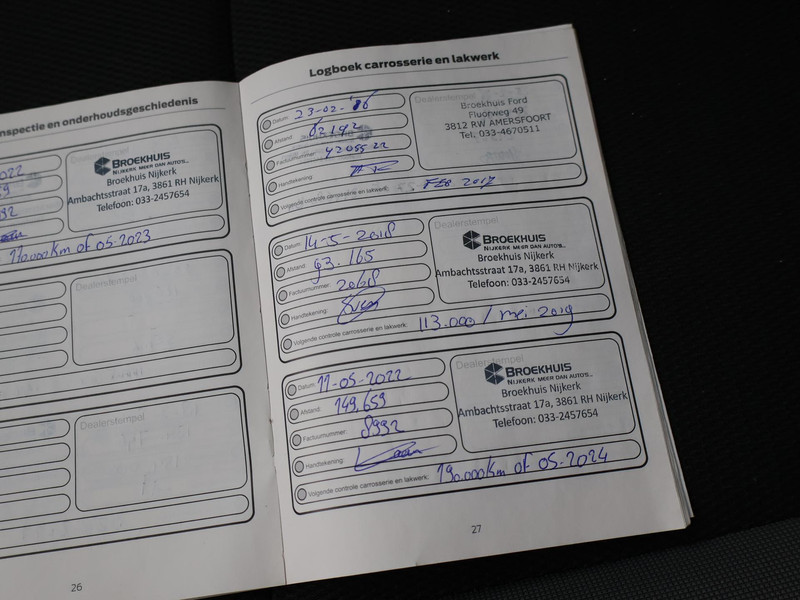 nspectie en onderhoudsgeschiedenis
Dealerstempel
BROEKHUIS
NIJKERK MEER DAN AUTO'S...
Broekhuis Nijkerk
Ambachtsstraat 17a, 3861 RH Nijkerk
Telefoon: 033-2457654
022
59
992
170.000km of 05-2023
Dealerstempel
Dealerstempel
26
Logboek carrosserie en lakwerk
Datum: 23-02-'16
Afstand:
Factuurnummer:
Handtekening:
Volgende controle carrosserie en lakwerk: FEB 2017
Dealerstempel
Broekhuis Ford
Fluorweg 49
3812 RW AMERSFOORT
Tel. 033-4670511
Datum: 14-5-2018
Afstand: 93.165
Factuurnummer: 2068
Handtekening:
Volgende controle carrosserie en lakwerk: 113.000 / mei 2019
Dealerstempel
BROEKHUIS
NIJKERK MEER DAN AUTO'S...
Broekhuis Nijkerk
Ambachtsstraat 17a, 3861 RH Nijkerk
Telefoon: 033-2457654
Datum: 11-05-2022
Afstand: 149.659
Factuurnummer: 8992
Handtekening:
Volgende controle carrosserie en lakwerk: 190.000km of 05-2024
Dealerstempel
BROEKHUIS
NIJKERK MEER DAN AUTO'S...
Broekhuis Nijkerk
Ambachtsstraat 17a, 3861 RH Nijkerk
Telefoon: 033-2457654
27